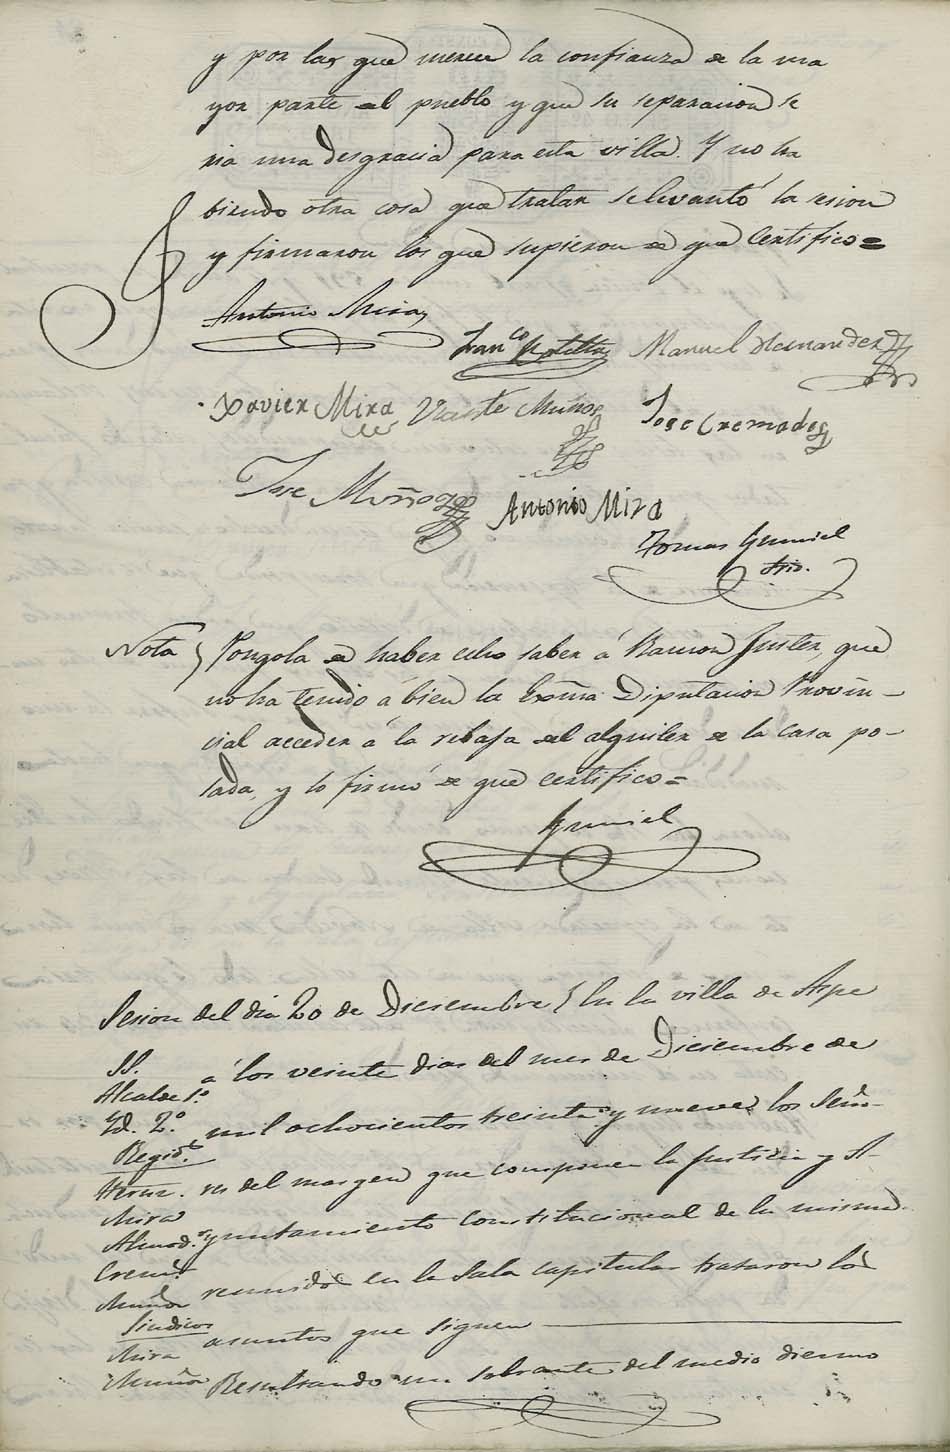 y por las que merece la confianza de la ma
yor parte del pueblo y que su separacion se
ria una desgracia para esta villa. Y no ha
biendo otra cosa que tratar se levantó la sesion
y firmaron los que supieron de que certifico=
Antonio Mira
Fran.co Manuel Hernandez
Xavier Mira Vicente Muñoz Jose Cremades
Jose Muñoz Antonio Mira
Tomas
Srio.
Nota Pongola de haber echo saber á Ramon Juster, que
no ha tenido á bien la Exma. Diputacion Provin-
cial acceder á la rebaja del alquiler de la casa po-
sada, y lo firmó de que certifico=
Sesion del dia 20 de Diciembre En la villa de Aspe
SS.
Alcalde 1.o
á los veinte dias del mes de Diciembre de
Yd. 2.o
mil ochocientos treinta y nueve los Seño-
Regid.s
Hern.
res del margen que componen la Justicia y A-
Mira
Almod.r
yuntamiento constitucional de la misma
Crem.s
Muñoz
reunidos en la Sala capitular trataron los
Sindicos
asuntos que siguen
Mira
Muñoz
Resultando un sobrante del medio diezmo